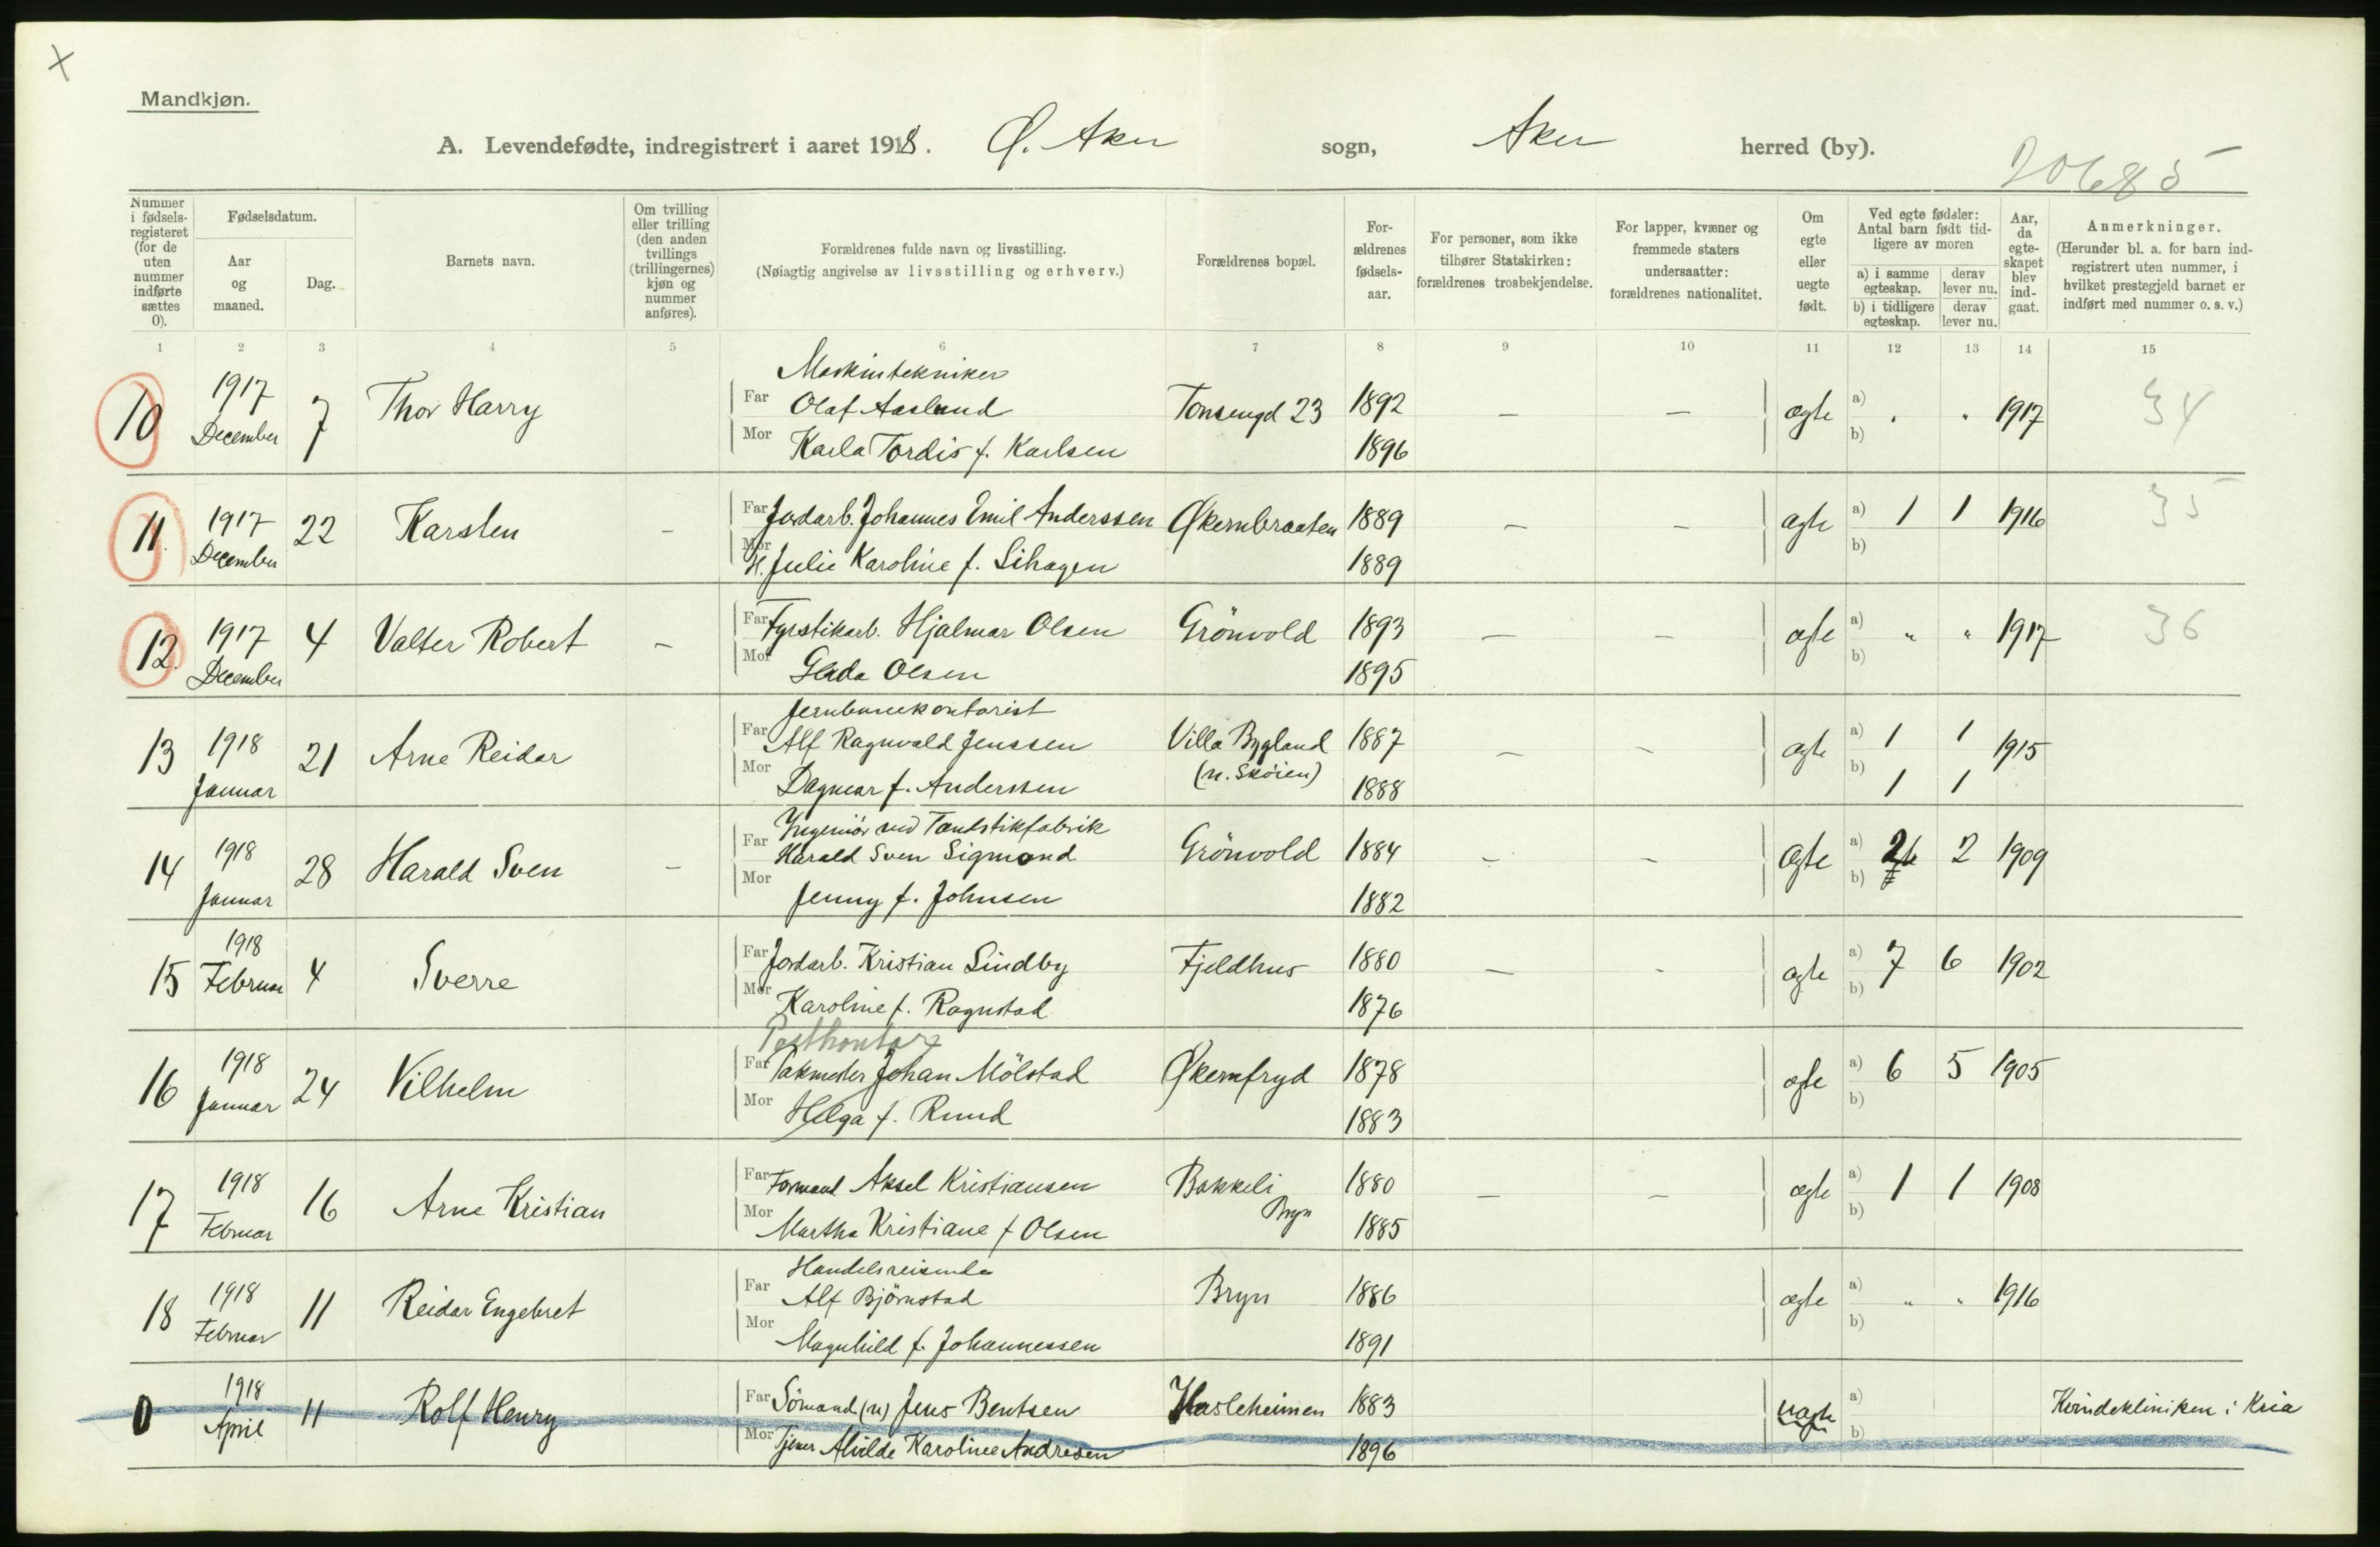 Mandkjøn.
A. Levendefødte, indregistrert i aaret 1918. Ø. Aker sogn, Aker herred (by).
20685
Nummer i fødsels-registeret (for de uten nummer indførte sættes 0).
Fødselsdatum.
Aar og maaned.
Dag.
Barnets navn.
Om tvilling eller trilling (den anden tvillings (trillingernes) kjøn og nummer anføres).
Forældrenes fulde navn og livsstilling.
(Nøiagtig angivelse av livsstilling og erhverv.)
Forældrenes bopæl.
For-ældrenes fødsels-aar.
For personer, som ikke tilhører Statskirken: forældrenes trosbekjendelse.
For lapper, kvæner og fremmede staters undersaatter: forældrenes nationalitet.
Om egte eller uegte født.
Ved egte fødsler: Antal barn født tid-ligere av moren
a) i samme egteskap.
derav lever nu.
b) i tidligere egteskap.
derav lever nu.
Aar, da egte-skapet blev ind-gaat.
Anmerkninger.
(Herunder bl. a. for barn ind-registrert uten nummer, i hvilket prestegjeld barnet er indført med nummer o. s. v.)
1 2 3 4 5 6 7 8 9 10 11 12 13 14 15
Maskintekniker
10 1917 December 7 Thor Harry Far Olaf Aasland Tonsengd 23 1892 — — ægte a) " " 1917 34
Mor Karla Tordis f. Karlsen 1896 b)
11. 1917 December 22 Karsten — Far Jordarb. Johannes Emil Anderssen Økernbraaten 1889 — — ægte a) 1 1 1916 35
Mor H. Julie Karoline f. Lihagen 1889 b)
12. 1917 December 4 Valter Robert — Far Fyrstikarb. Hjalmar Olsen Grönvold 1893 — — ægte a) " " 1917 36
Mor Olsen 1895 b)
Jernbanekontorist
13 1918 Januar 21 Arne Reidar Far Alf Ragnvald Jenssen Villa Bygland (n. Skøien) 1887 — — ægte a) 1 1 1915
Mor Dagmar f. Anderssen 1888 b) 1 1
Ingeniør ved Tændstikfabrik
14 1918 Januar 28 Harald Sven — Far Harald Sven Sigmond Grönvold 1884 — — ægte a) 2 2 1909
Mor Jenny f. Johnsen 1882 b)
15 1918 Februar 4 Sverre Far Jordarb. Kristian Lindby Fjeldhus 1880 — - ægte a) 7 6 1902
Mor Karoline f. Ragnstad 1876 b)
Postkontor
16 1918 Januar 24 Vilhelm Far Pakmester Johan Mölstad Økernfryd 1878 ægte a) 6 5 1905
Mor Helga f. Rund 1883 b)
17 1918 Februar 16 Arne Kristian Far Formand Aksel Kristiansen Bakkeli Bryn 1880 — — ægte a) 1 1 1908
Mor Martha Kristiane f Olsen 1885 b)
Handelsreisende
18 1918 Februar 11 Reidar Engebret Far Alf Björnstad Bryn 1886 ægte a) " " 1916
Mor Magnhild f. Johannessen 1891 b)
0 1918 April 11 Rolf Henry Far Sömand (n) Jens Bentsen Hasleheimen 1883 uægte a) Kvindekliniken i Kria
Mor Tjener Alvilde Karoline Andresen 1896 b)